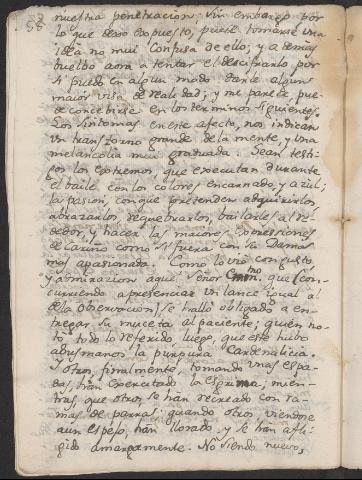 58 nuestra penetracion: Sin embargo por
lo que dexo expuesto, puede tomarse una
idea no mui confusa de ello; y a demas
buelbo aora a tentar el descifrarlo por
si puedo en algun modo darle algun
maior viso de realidad; y me parece pue-
de concebirse en los terminos siguientes.
Los Sintomas en este afecto, nos indican
un transtorno grande de la mente, y una
melancolia mui graduada. Sean testi-
gos los extremos, que executan durante
el baile con los colores encarnado, y azul;
la pasion, con que pretenden adquirirlos,
abrazarlos, requebrarlos, bailarles al re-
dedor, y hacer las maiores expresiones
de cariño como si fuera con su Dama
mas apasionada. Como lo vio con gusto
y admiracion aqui Señor que (con-
curriendo a presenciar un lance igual al
de la observacion) se hallo obligado a en-
tregar su muceta al paciente; quien no-
to todo lo referido, luego, que este hubo
a sus manos la purpura Cardenalicia.
Y otros, finalmente, tomando unas espa-
das, han executado la esgrima, mien-
tras, que otros se han recreado con ra-
mas de parras: quando otros viendose
a un espejo, han llorado, y se han afli-
gido amargamente. No siendo nuevo,